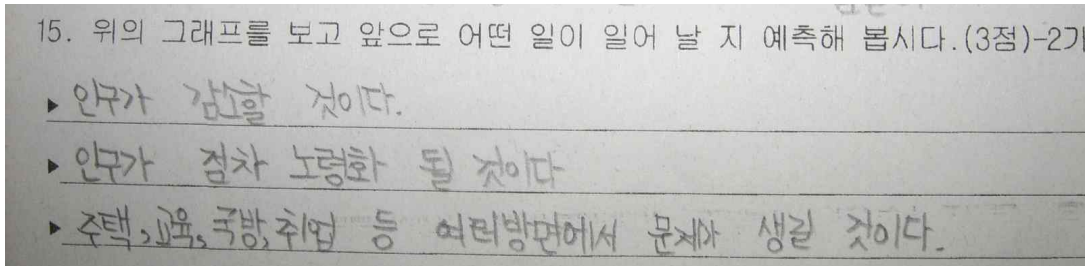 15. 위의 그래프를 보고 앞으로 어떤 일이 일어 날 지 예측해 봅시다.(3점)-2가
▸ 인구가 감소할 것이다.
▸ 인구가 점차 노령화 될 것이다
▸ 주택,교육,국방,취업 등 여러방면에서 문제가 생길 것이다.